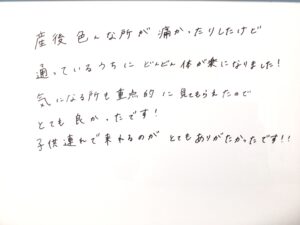 産後色んな所が痛かったりしたけど
通っているうちにどんどん体が楽になりました!
気になる所も重点的に見てもらえたので
とても良かったです!
子供連れで来れるのがとてもありがたかったです!!